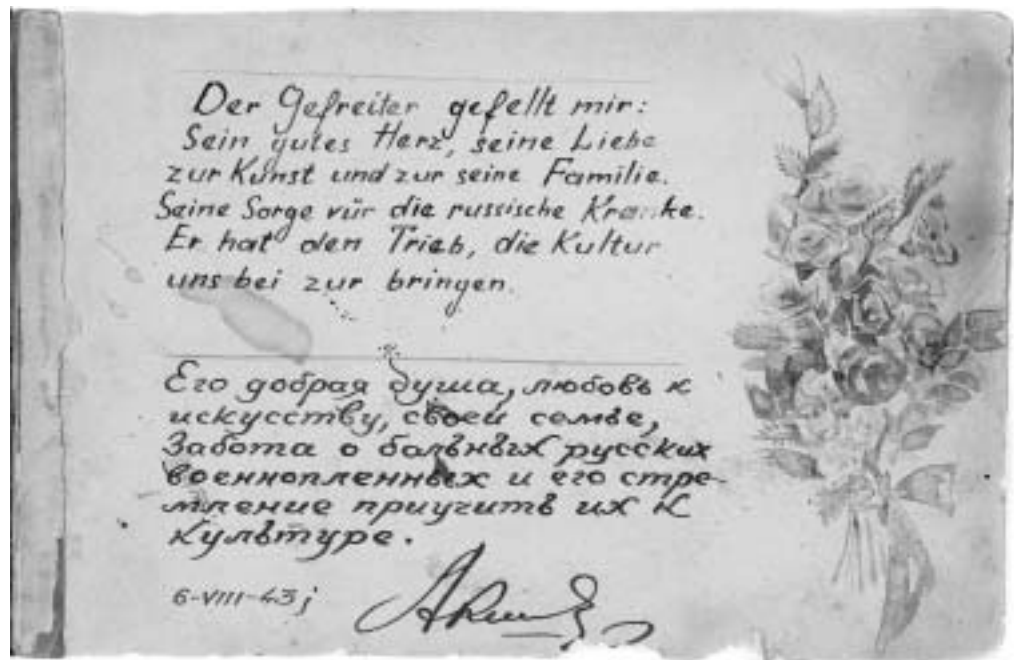 Der Gefreiter gefellt mir:
Sein gutes Herz, seine Liebe
zur Kunst und zur seine Familie.
Seine Sorge vür die russische Kranke.
Er hat den Trieb, die Kultur
uns bei zur bringen.
Его добрая душа, любовь к
искусству, своей семье,
Забота о больных русских
военнопленных и его стре-
мление приучить их к
культуре.
6-VIII-43 j